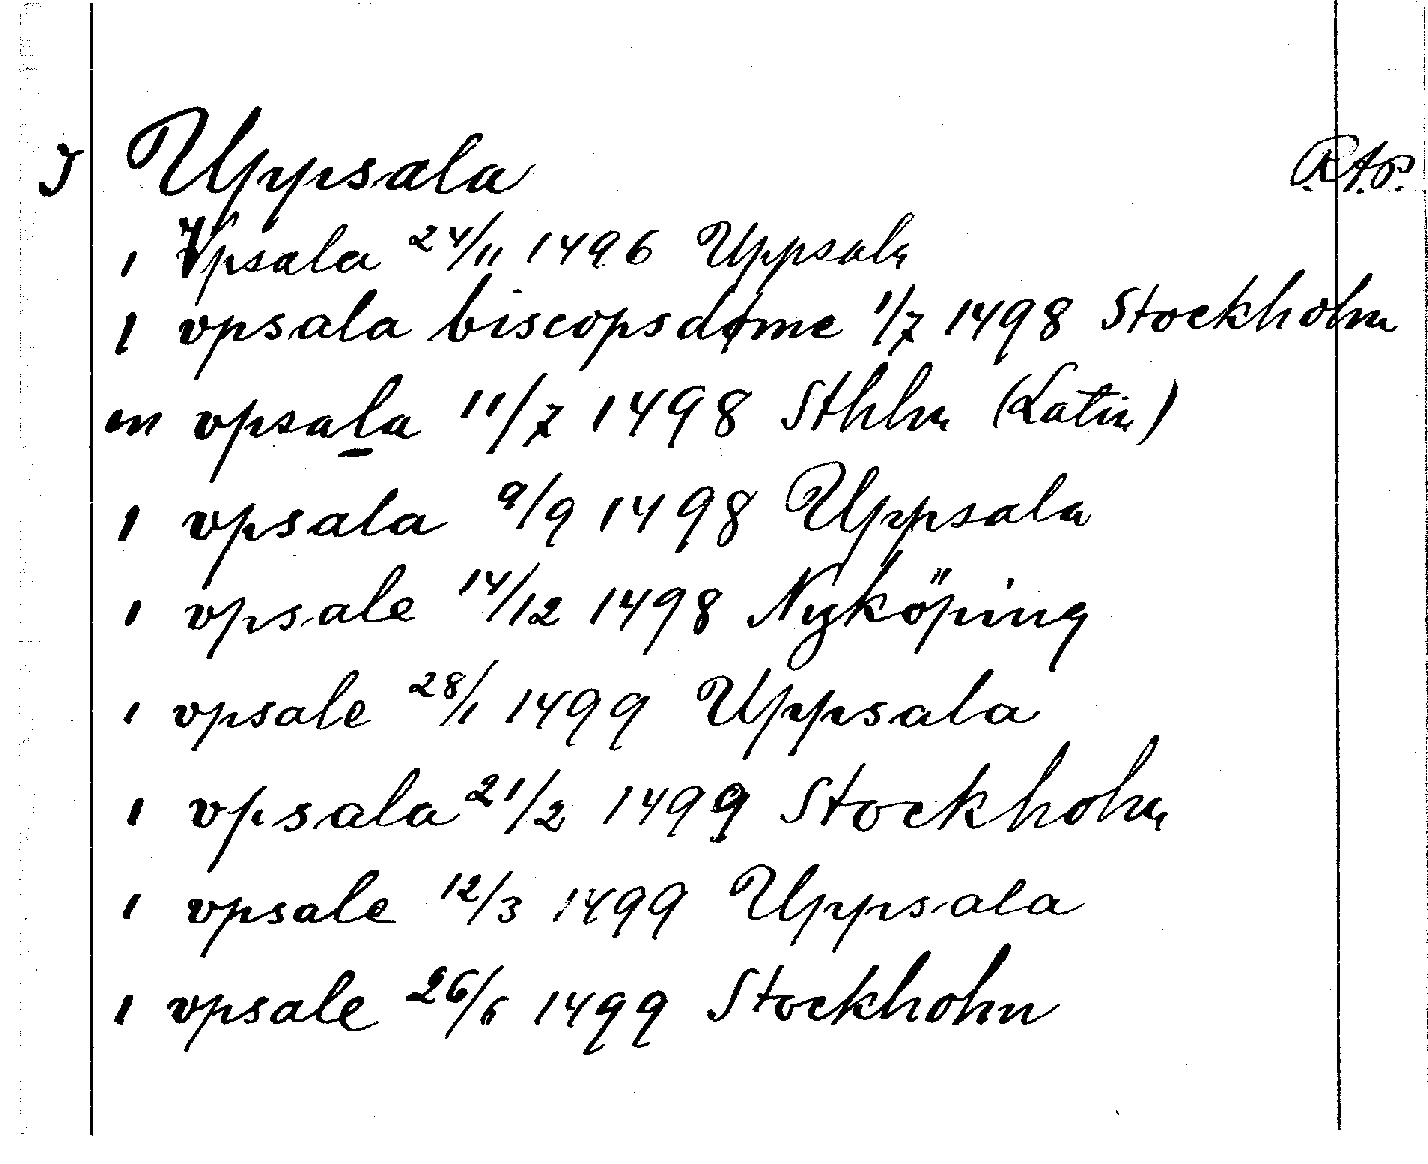 I Uppsala R.A.P.
i Vpsala 24/11 1496 Uppsala
i vpsala biscopsdøme 1/7 1498 Stockholm
in vpsala 11/7 1498 Sthlm (Latin)
i vpsala 9/9 1498 Uppsala
i vpsale 14/12 1498 Nyköping
i vpsale 28/1 1499 Uppsala
i vpsala 21/2 1499 Stockholm
i vpsale 12/3 1499 Uppsala
i vpsale 26/6 1499 Stockholm